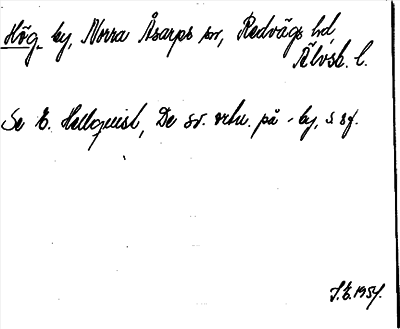 Hög by, Norra Åsarps sn, Redvägs hd,
Älvsb. l.
Se E. Hellquist, De sv. ortn. på -by, s 87.
J.E. 1954.